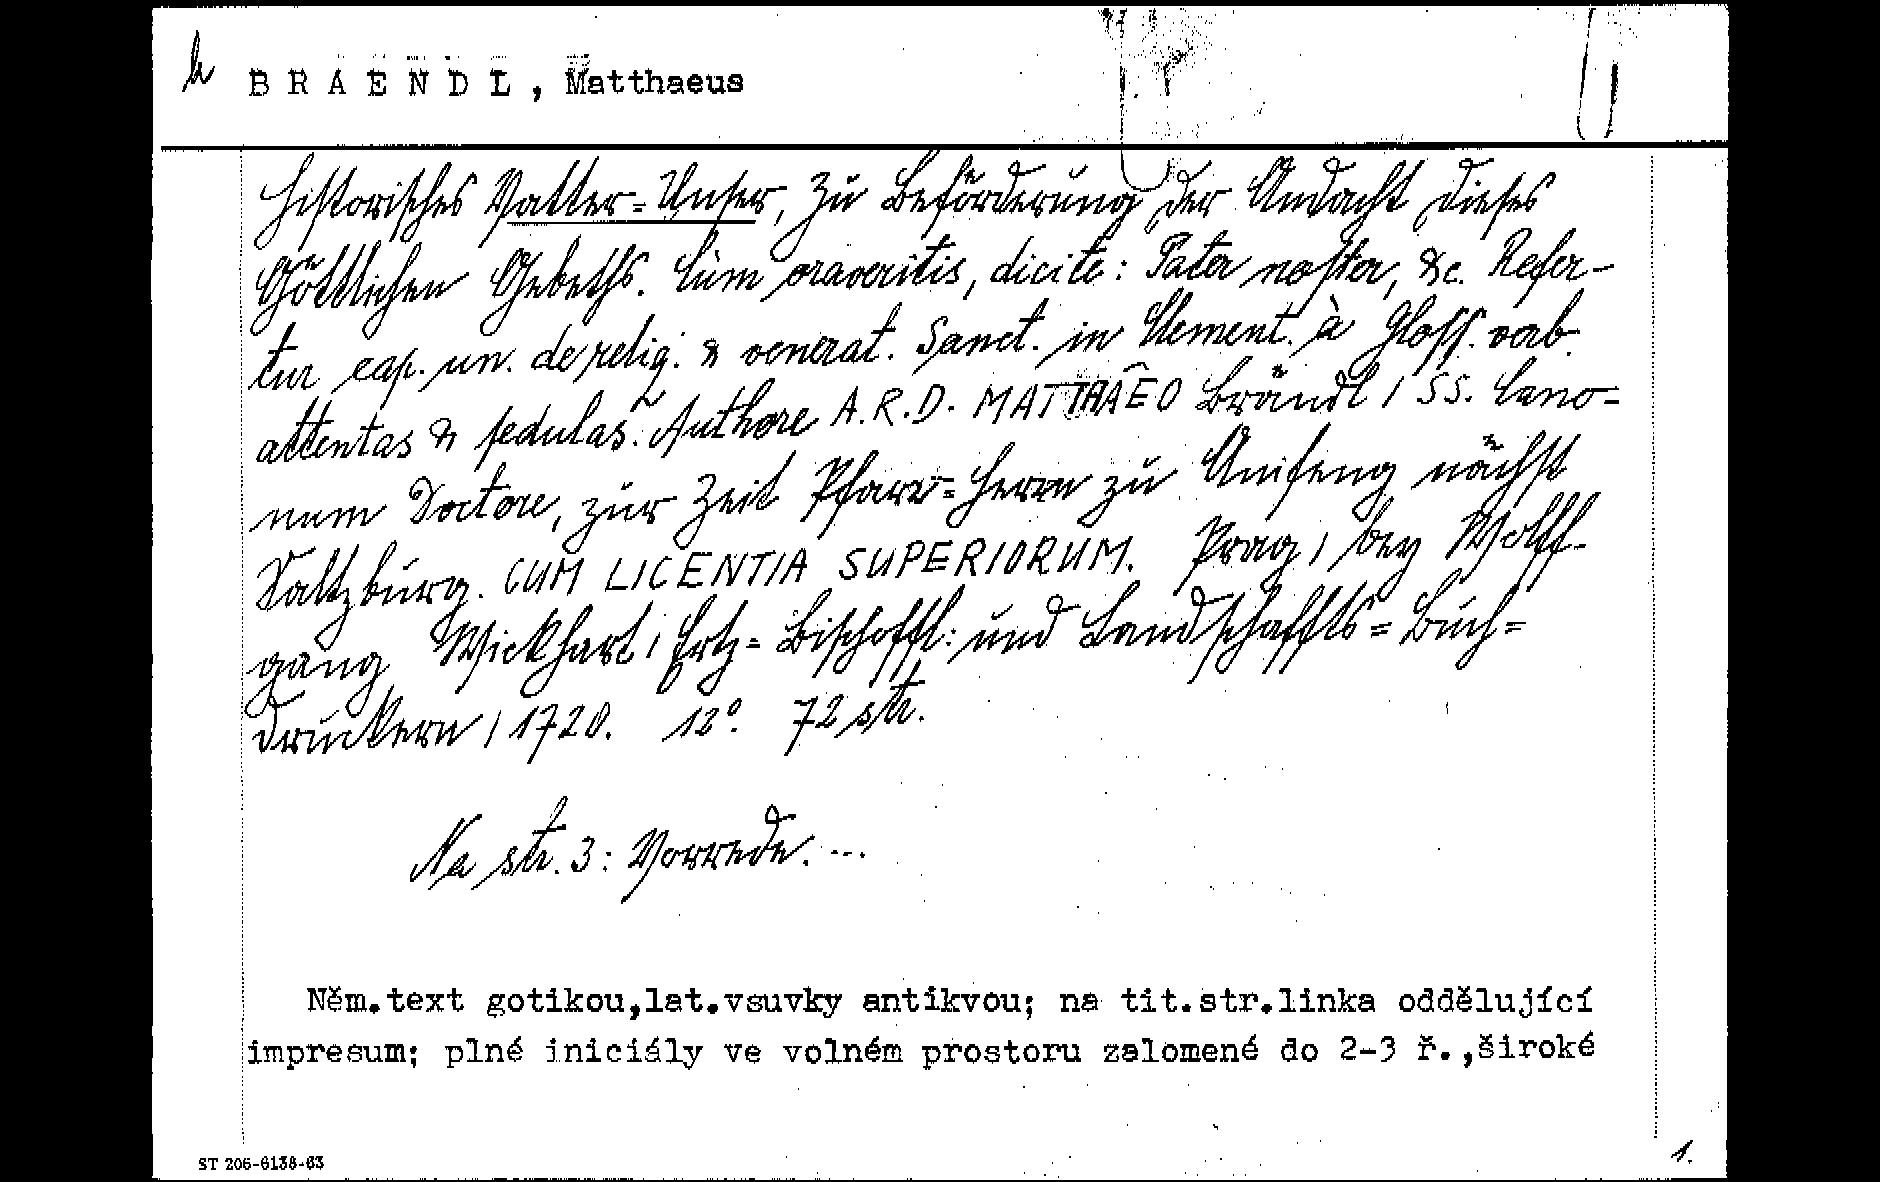 h BRAENDL, Matthaeus
Historisches Vatter=Unser, Zu Beförderung der Andacht dieses
Göttlichen Gebeths. Cùm oraveritis, dicite: Pater noster, &c. Refer-
tur cap. un. de relig. & venerat. Sanct. in Clement. à Gloss. verb.
attentas & sedulas. Authore A.R.D. MATTHÆO Brändl / SS. Cano=
num Doctore, zur Zeit Pfarr=Herrn zu Anifeng nächst
Saltzburg. CUM LICENTIA SUPERIORUM. Prag / bey Wolff-
gang Wickhart / Ertz=Bischoffl: und Landschaffts=Buch=
druckern / 1720. 12° 72 str.
Na str. 3: Vorrede. ...
Něm.text gotikou,lat.vsuvky antikvou; na tit.str.linka oddělující
impresum; plné iniciály ve volném prostoru zalomené do 2-3 ř.,široké
ST 206-6138-63
1.